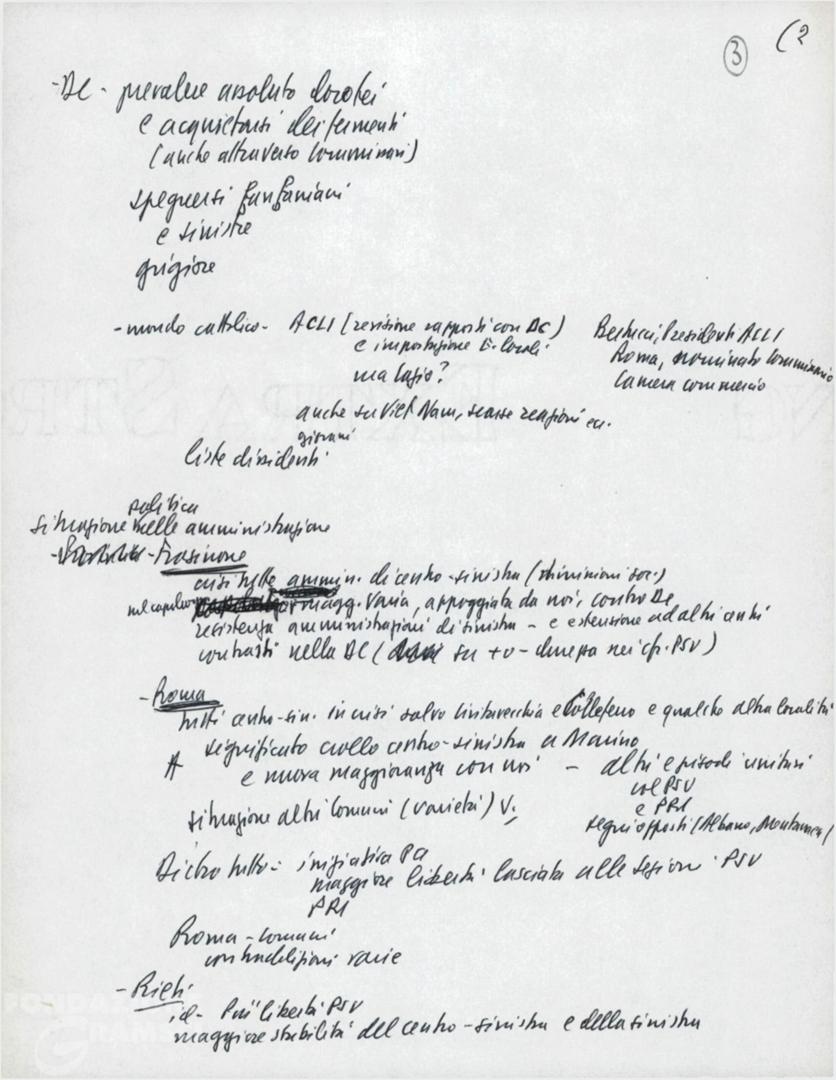 3 (2
- DC - prevalere assoluto dorotei
e acquietarsi dei fermenti
(anche attraverso
spegnersi fanfaniani
e sinistre
grigiore
- mondo cattolico - ACLI (revisione rapporti con DC)
e impostazione E. locali
ma Lazio?
Presidenti ACLI
Roma, nominato Commissario
Camera commercio
anche su Viet Nam, scarse reazioni ecc.
giovani
liste dissidenti
politica
situazione nelle amministrazione
- Frosinone
crisi nelle ammin. di centro-sinistra (dimissioni soc.)
nel capoluogo magg. varia, appoggiata da noi, contro DC
resistenza amministrazioni di sinistra - e estensione ad altri centri
contrasti nella DC ( su +o- nei cfr. PSU)
- Roma
tutti centro-sin. in crisi salvo Civitavecchia e Colleferro e qualche altra località
significato crollo centro-sinistra a Marino
e nuova maggioranza con noi - altri episodi unitari
col PSU
e PRI
segni opposti (Albano,
situazione altri Comuni (varietà) V.
Dietro tutto - iniziativa
maggiore libertà lasciata alle sezioni PSU
PRI
Roma - comuni
contraddizioni varie
- Rieti
id - Più libertà PSU
maggiore stabilità del centro-sinistra e della sinistra
FONDAZ
GRAMS
EXTRA STR